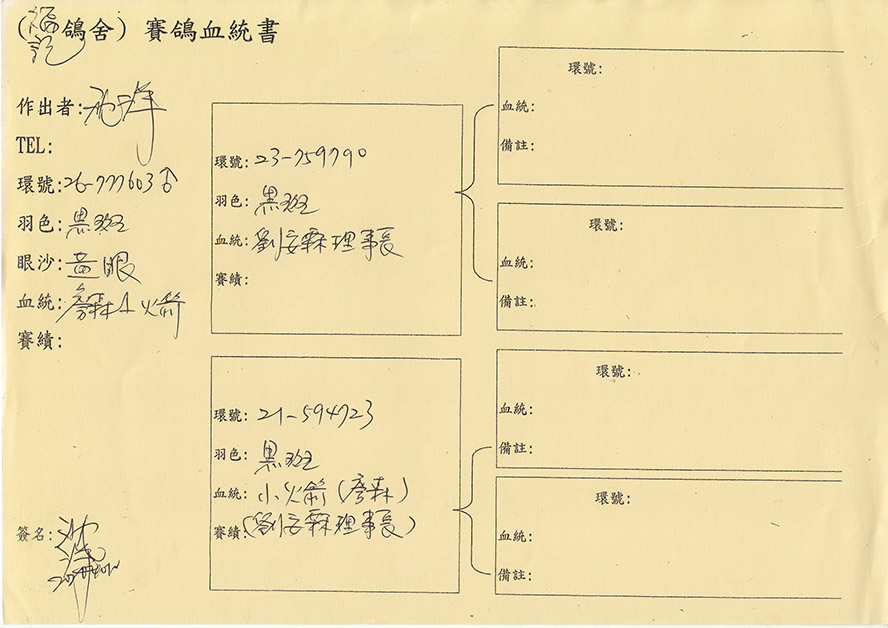 (福記鴿舍) 賽鴿血統書
作出者:
TEL:
環號:26-777603♂
羽色:黑斑
眼沙:黃眼
血統:小火箭
賽績:
簽名:
環號:23-759790
羽色:黑斑
血統:劉安霖理事長
賽績:
環號:21-594723
羽色:黑斑
血統:小火箭(彥森)
賽績:(劉安霖理事長)
環號:
血統:
備註:
環號:
血統:
備註:
環號:
血統:
備註:
環號:
血統:
備註: